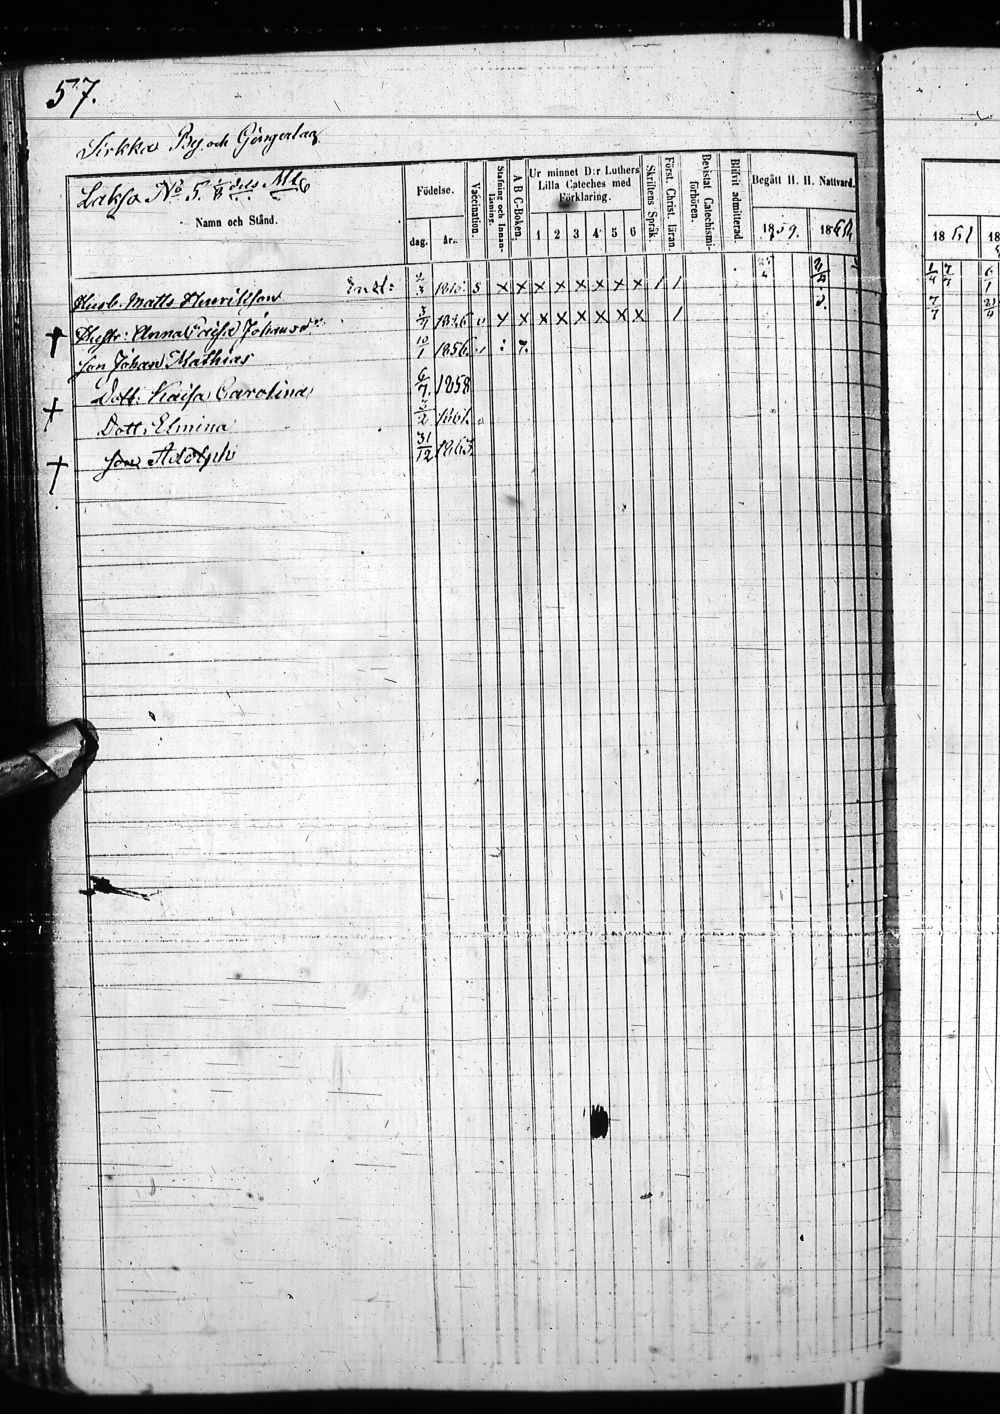 57.
Sirkka By och Göngerlag
Laksa No 5. 1/8 dels Mtl
Namn och Stånd.
Födelse.
dag. år.
Vaccination.
Stafning och Innanläsning.
A B C-Boken.
Ur minnet D:r Luthers Lilla Cateches med Förklaring.
1 2 3 4 5 6
Skriftens Språk.
Först. Christ. läran.
Bevistat Catechismiförhören.
Blifvit admitterad.
Begått H. H. Nattvard.
1859. 1860. 1861 18
Husb. Matts Henriksson s x x x x x x x x / /
Hustr: Anna Caisa Johansdr 3/7 1826 v x x x x x x x x /
Son Johan Mathias 10/1 1856
Dott: Kaisa Carolina 6/7 1858
Dott: Elmina 3/2 1861
Son Adolph 31/12 1863